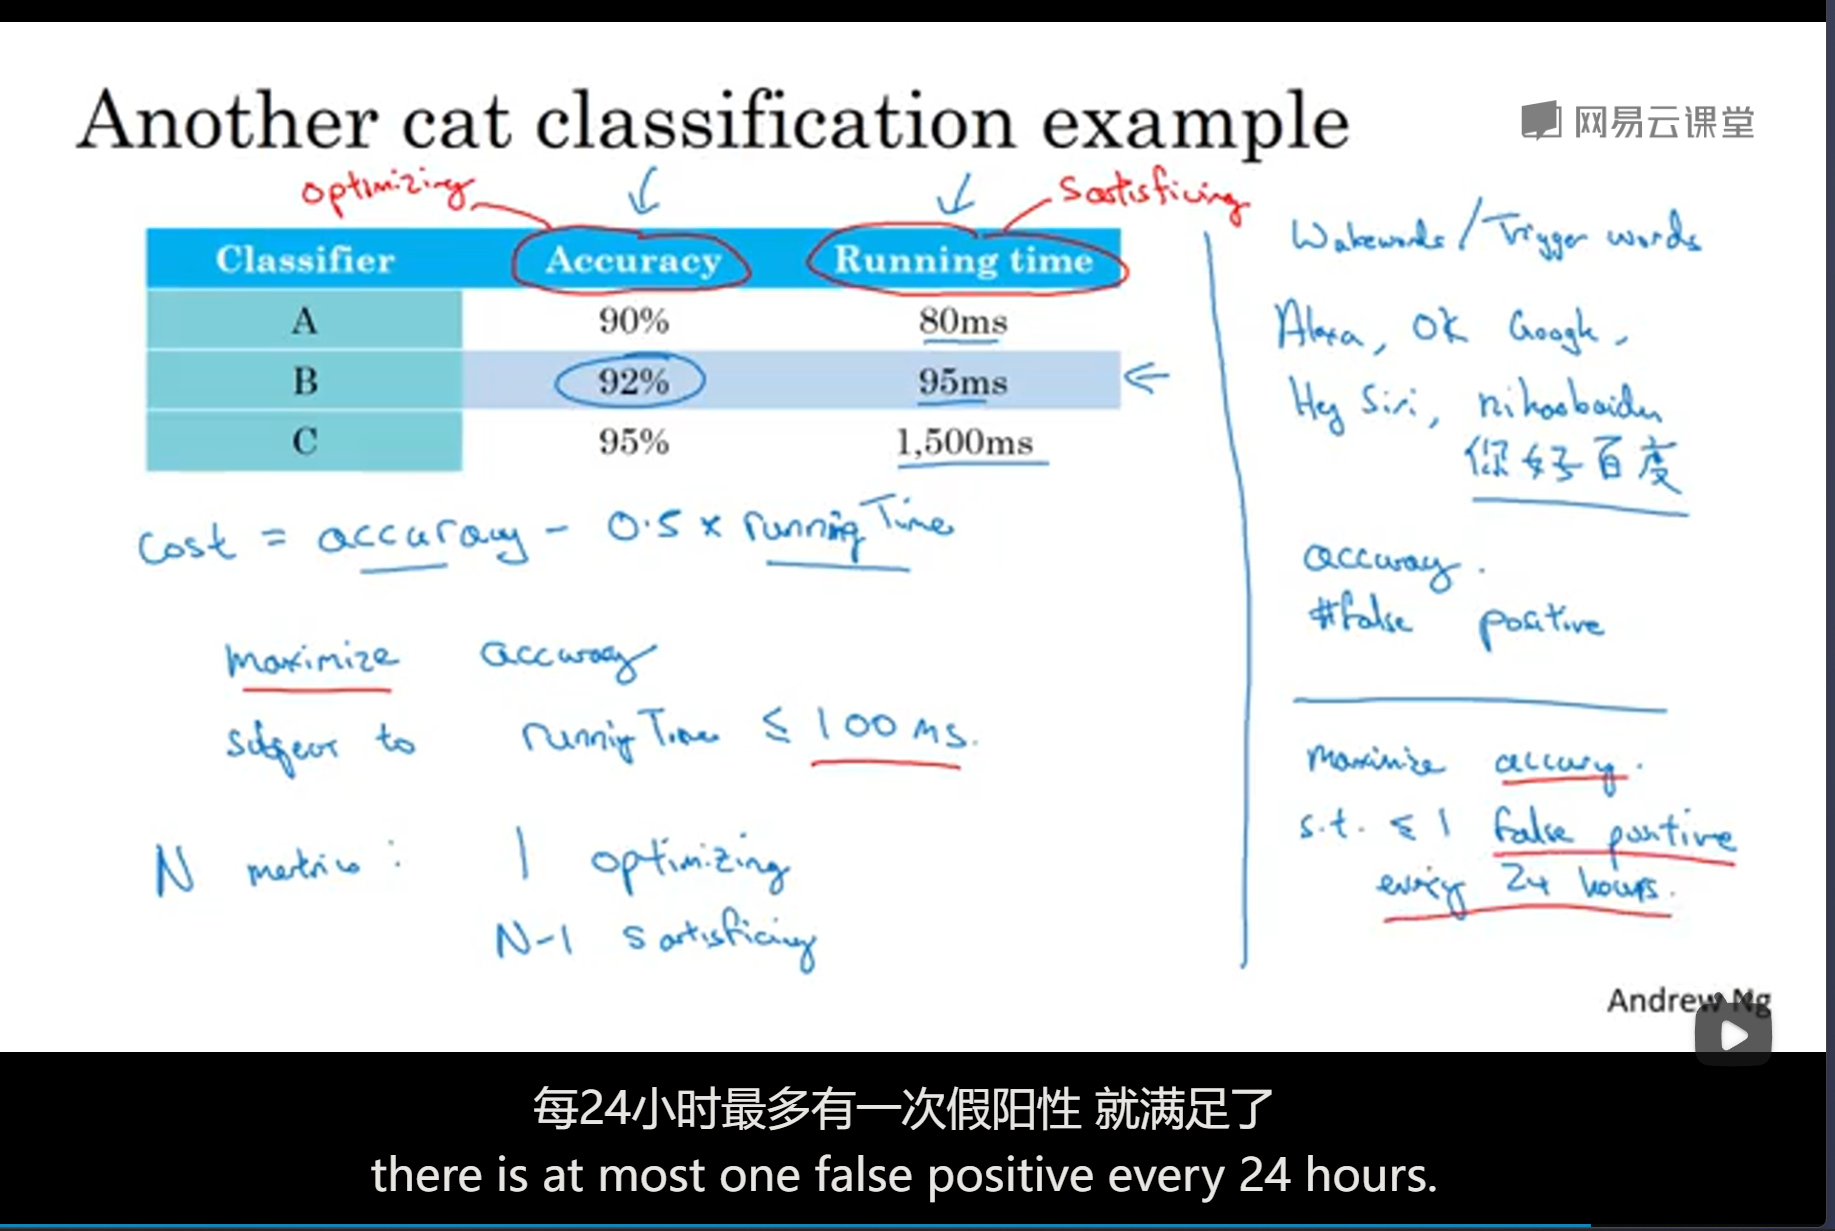 Another cat classification example
网易云课堂
optimizing
Satisficing
Classifier Accuracy Running time
A 90% 80ms
B 92% 95ms
C 95% 1,500ms
Cost = accuracy - 0.5 x running Time
maximize accuracy
subject to running Time ≤ 100 ms.
N metrics: 1 optimizing
N-1 satisficing
Wakewords / Trigger words
Alexa, OK Google,
Hey Siri, nihaobaidu
你好百度
accuracy.
#false positive
Maximize accuracy.
s.t. ≤ 1 false positive
every 24 hours.
Andrew Ng
每24小时最多有一次假阳性 就满足了
there is at most one false positive every 24 hours.